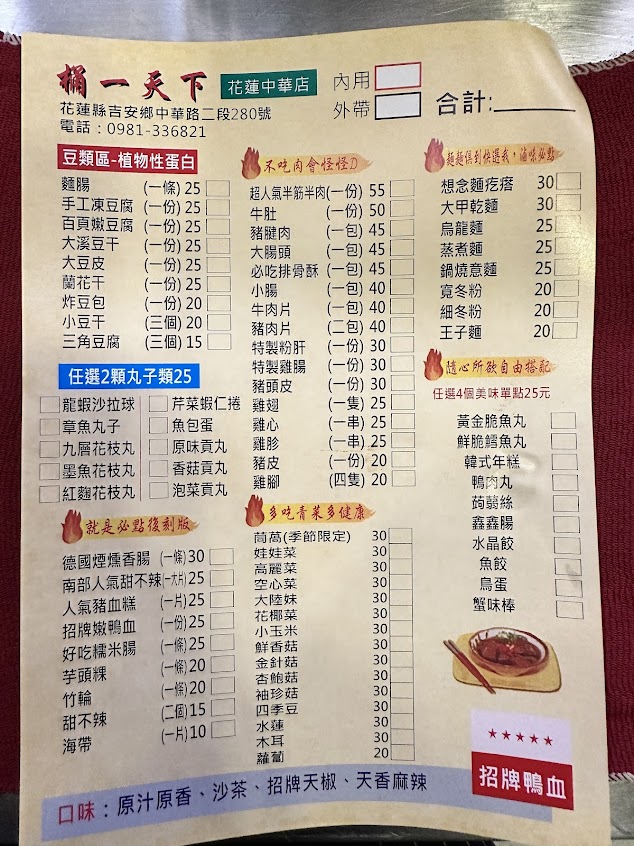 桶一天下 花蓮中華店
花蓮縣吉安鄉中華路二段280號
電話：0981-336821
內用
外帶
合計:
豆類區-植物性蛋白
麵腸 (一條) 25
手工凍豆腐 (一份) 25
百頁嫩豆腐 (一份) 25
大溪豆干 (一份) 25
大豆皮 (一份) 25
蘭花干 (一份) 25
炸豆包 (一份) 20
小豆干 (三個) 20
三角豆腐 (三個) 15
任選2顆丸子類25
龍蝦沙拉球 芹菜蝦仁捲
章魚丸子 魚包蛋
九層花枝丸 原味貢丸
墨魚花枝丸 香菇貢丸
紅麴花枝丸 泡菜貢丸
就是必點復刻版
德國煙燻香腸 (一條) 30
南部人氣甜不辣 (一大片) 25
人氣豬血糕 (一片) 25
招牌嫩鴨血 (一份) 25
好吃糯米腸 (一條) 25
芋頭粿 (一條) 20
竹輪 (一條) 20
甜不辣 (二個) 15
海帶 (一片) 10
不吃肉會怪怪D
超人氣半筋半肉 (一份) 55
牛肚 (一份) 50
豬腱肉 (一包) 45
大腸頭 (一包) 45
必吃排骨酥 (一包) 45
小腸 (一包) 40
牛肉片 (一包) 40
豬肉片 (二包) 40
特製粉肝 (一份) 30
特製雞腸 (一份) 30
豬頭皮 (一份) 30
雞翅 (一隻) 25
雞心 (一串) 25
雞胗 (一串) 25
豬皮 (一份) 20
雞腳 (四隻) 20
多吃青菜多健康
茼萵(季節限定) 30
娃娃菜 30
高麗菜 30
空心菜 30
大陸妹 30
花椰菜 30
小玉米 30
鮮香菇 30
金針菇 30
杏鮑菇 30
袖珍菇 30
四季豆 30
水蓮 30
木耳 30
蘿蔔 20
麵麵俱到快選我，滷味必點
想念麵疙瘩 30
大甲乾麵 30
烏龍麵 25
蒸煮麵 25
鍋燒意麵 25
寬冬粉 20
細冬粉 20
王子麵 20
隨心所欲自由搭配
任選4個美味單點25元
黃金脆魚丸
鮮脆鱈魚丸
韓式年糕
鴨肉丸
蒟蒻絲
鑫鑫腸
水晶餃
魚餃
鳥蛋
蟹味棒
★★★★★
招牌鴨血
口味：原汁原香、沙茶、招牌天椒、天香麻辣